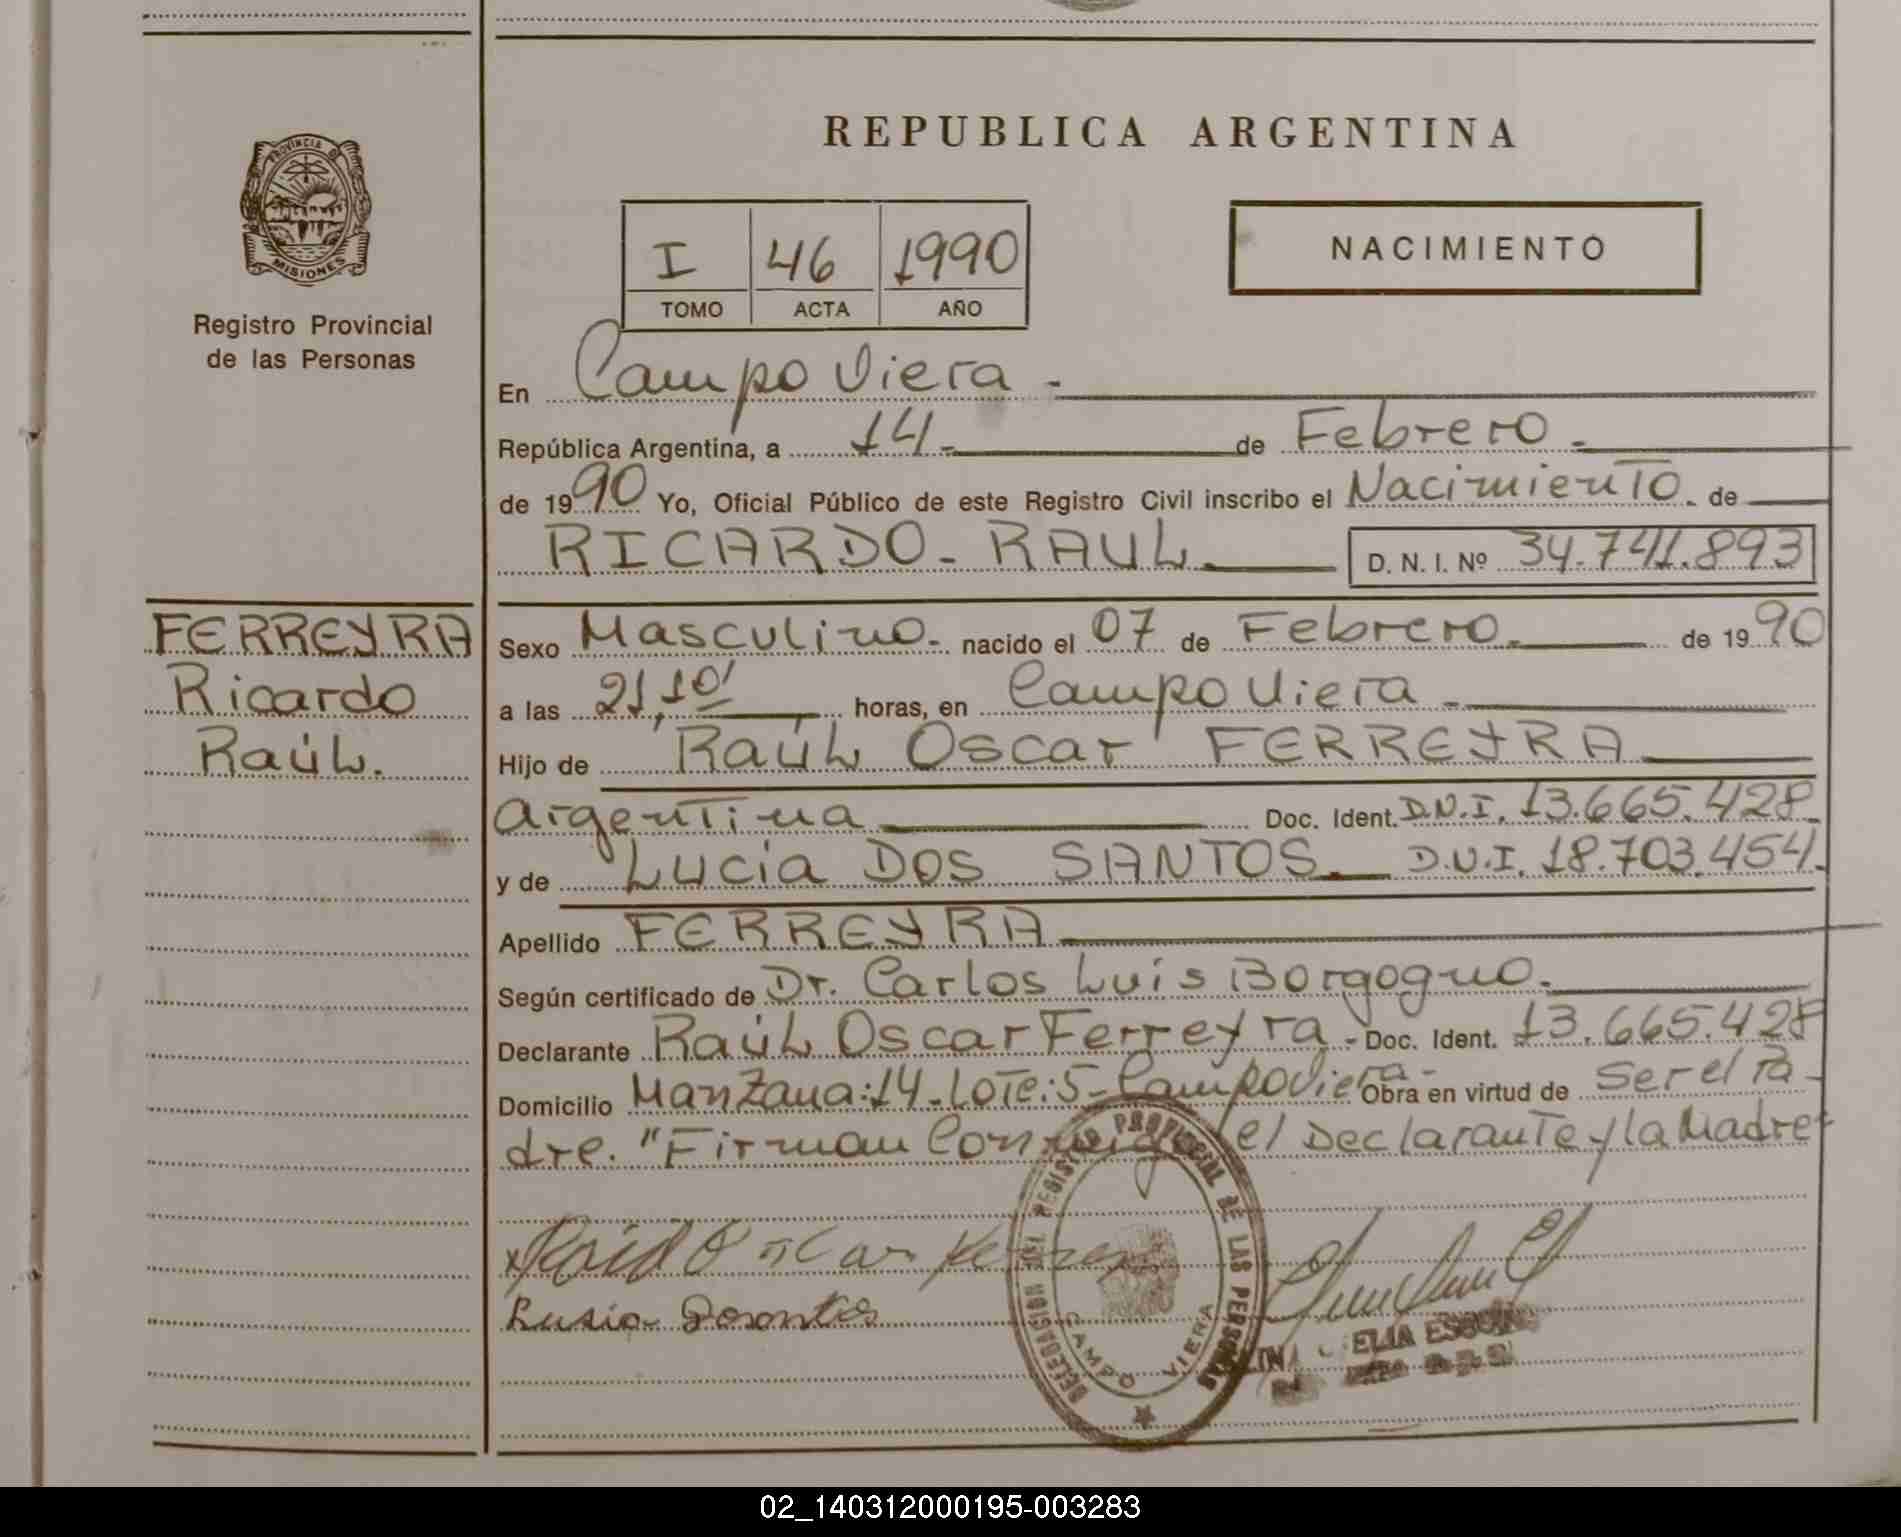 PROVINCIA DE
MISIONES
Registro Provincial
de las Personas
FERREYRA
Ricardo
Raúl.
REPUBLICA ARGENTINA
I 46 1990
TOMO ACTA AÑO
NACIMIENTO
En Campo Viera.-
República Argentina, a 14.- de Febrero.-
de 1990 Yo, Oficial Público de este Registro Civil inscribo el Nacimiento. de
RICARDO. RAUL. D. N. I. Nº 34.741.893
Sexo Masculino. nacido el 07 de Febrero. de 1990
a las 21,10' horas, en Campo Viera.
Hijo de Raúl Oscar FERREYRA
Argentina Doc. Ident. D.N.I. 13.665.428.
y de Lucia DOS SANTOS. D.N.I. 18.703.454.
Apellido FERREYRA
Según certificado de Dr. Carlos Luis Borgogno.
Declarante Raúl Oscar Ferreyra.- Doc. Ident. 13.665.428
Domicilio Manzana:14-Lote:5-Campo Viera- Obra en virtud de Ser el Pa-
dre. "Firman Conmigo el Declarante y la Madre-
Raúl Oscar
Lusia Dosantos
DELEGACION DEL REGISTRO PROVINCIAL DE LAS PERSONAS
CAMPO VIERA
ELIA
02_140312000195-003283